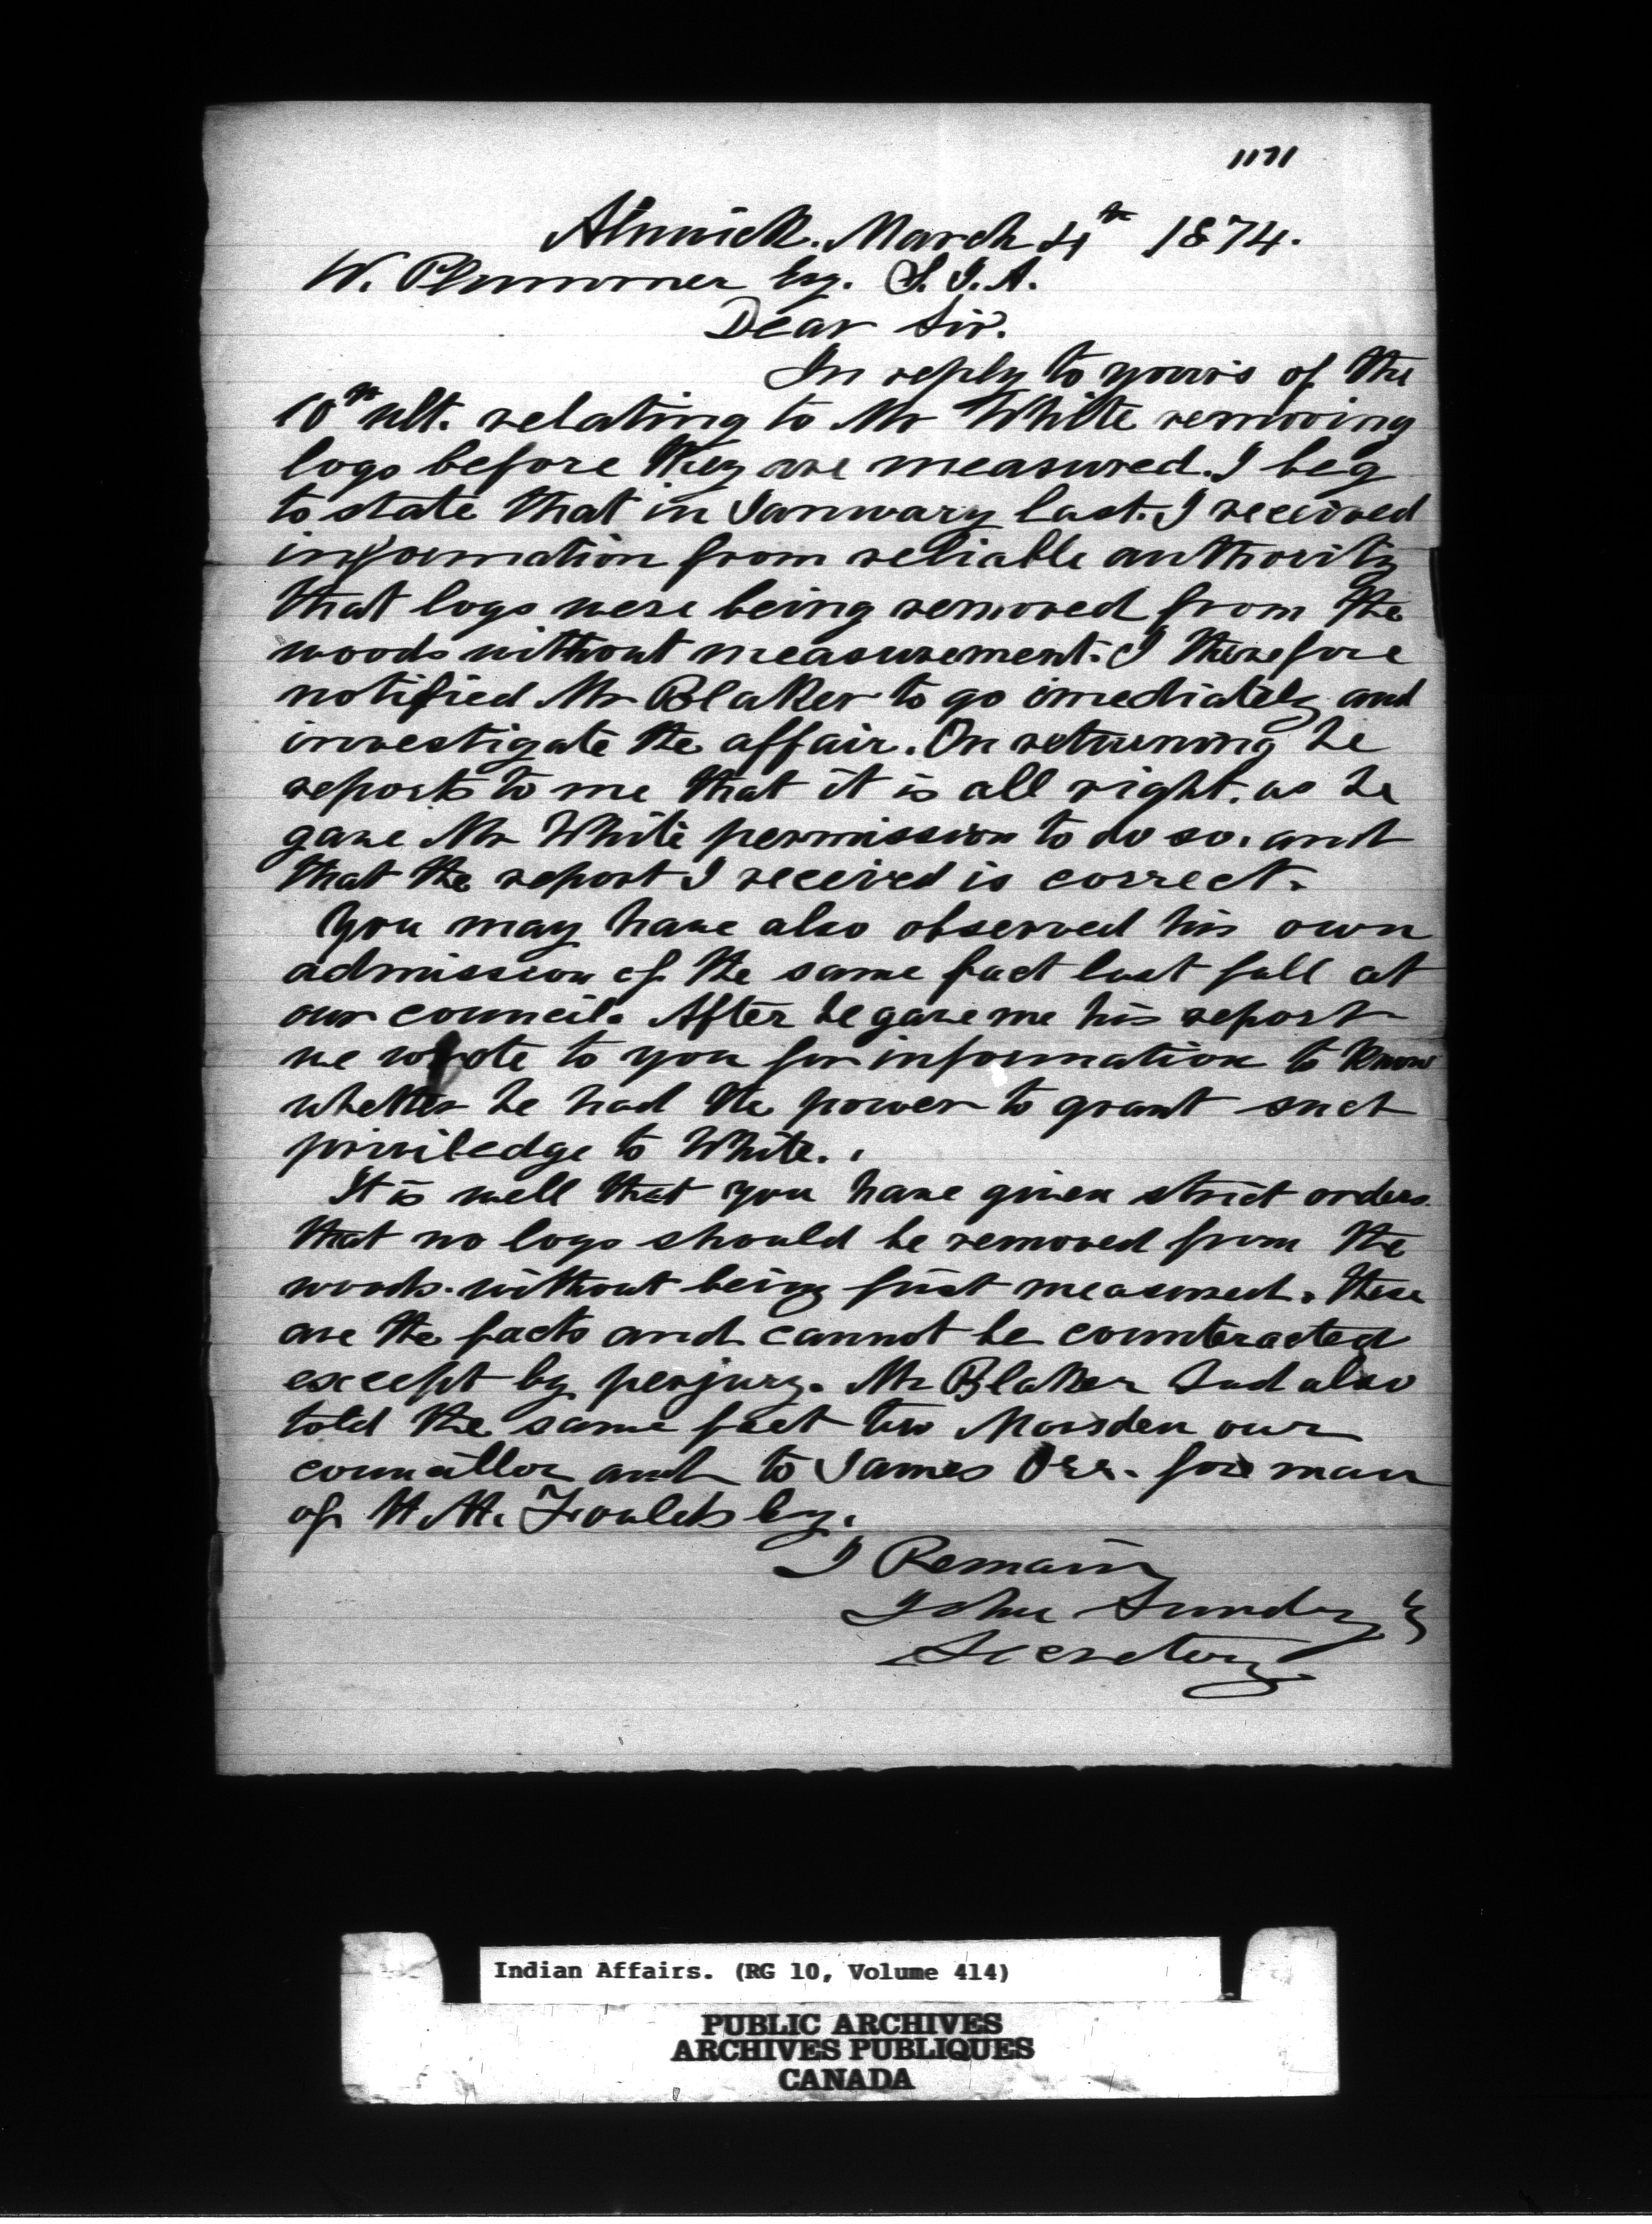 1171
Alnwick. March 4th 1874.
W. Plummer Esq. S. I. A.
Dear Sir.
In reply to yours of the
10th ult. relating to Mr White removing
logs before they are measured. I beg
to state that in January last. I received
information from reliable authority
that logs were being removed from the
woods without measurement. I therefore
notified Mr Blaker to go imediately and
investigate the affair. On returning he
reports to me that it is all right. as he
gave Mr White permission to do so. and
that the report I received is correct.
You may have also observed his own
admission of the same fact last fall at
our council. After he gave me his report
we wrote to you for information to know
whether he had the power to grant such
priviledge to White.
It is well that you have given strict orders
that no logs should be removed from the
woods without being first measured. These
are the facts and cannot be counteracted
except by perjury. Mr Blaker had also
told the same fact to Marsden our
councillor and to James Orr. foreman
of H. H. Foulds Esq.
I Remain
John Sunday
Secretary
Indian Affairs. (RG 10, Volume 414)
PUBLIC ARCHIVES
ARCHIVES PUBLIQUES
CANADA